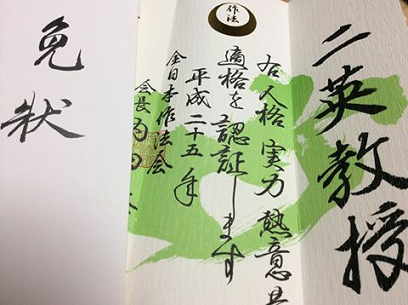 二英教授
右人格実力熱意
適格を認証します
平成二十五年
全日本作法会
会長
作法
免状